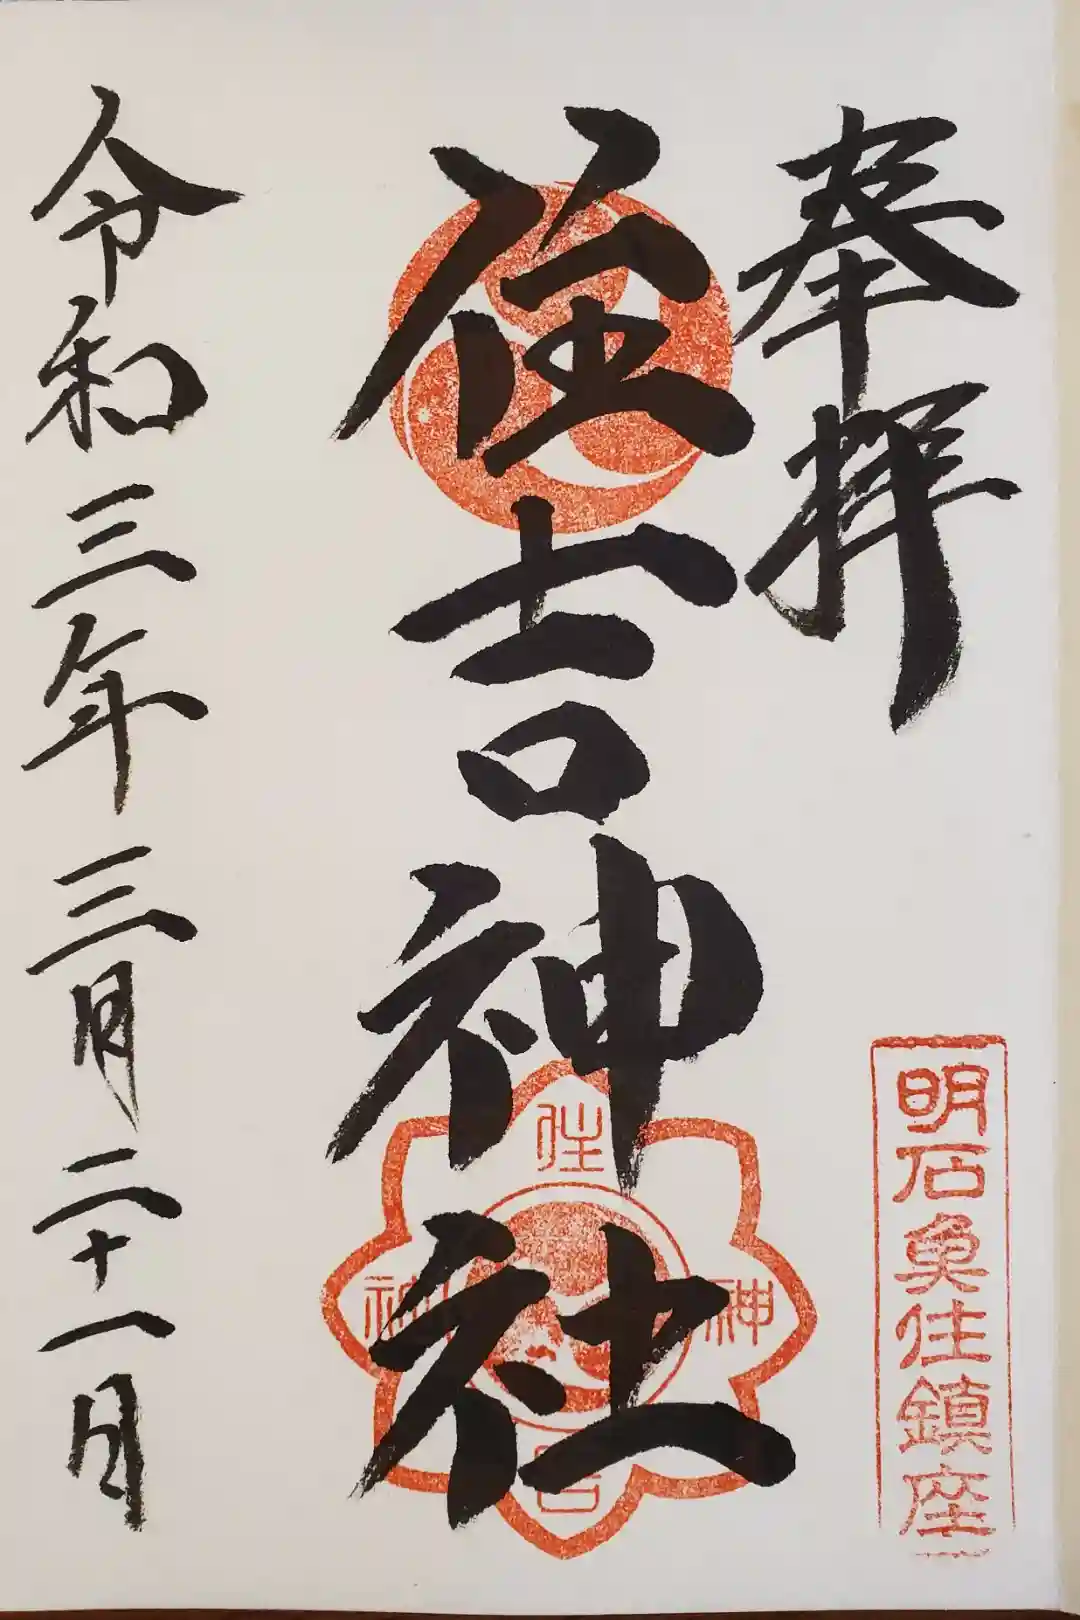 奉拝
明石魚住鎮座
住吉神社
住
神
神
吉
令和三年三月二十一日